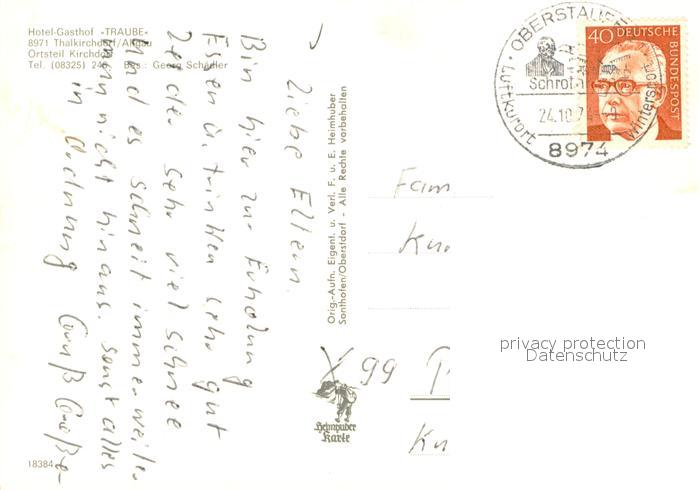 Hotel-Gasthof »TRAUBE«
8971 Thalkirchdorf/Allgäu
Ortsteil Kirchdorf
Tel. (08325) 24 Bes.: Georg Schädler
Liebe Eltern.
Bin hier zur Erholung
Essen u. trinken sehr gut
leider sehr viel Schnee
und es schneit immer weiter
kann nicht hinaus. sonst alles
in Ordnung Gruß
18384
Orig.-Aufn. Eigent. u. Verl. F. u. E. Heimhuber
Sonthofen/Oberstdorf - Alle Rechte vorbehalten
Heimhuber
Karte
OBERSTAUFEN
Schroth
24.10.74
Luftkurort
Wintersport
8974
40 DEUTSCHE
BUNDESPOST
Fam
Kn
X 99 P
Kn
privacy protection
Datenschutz